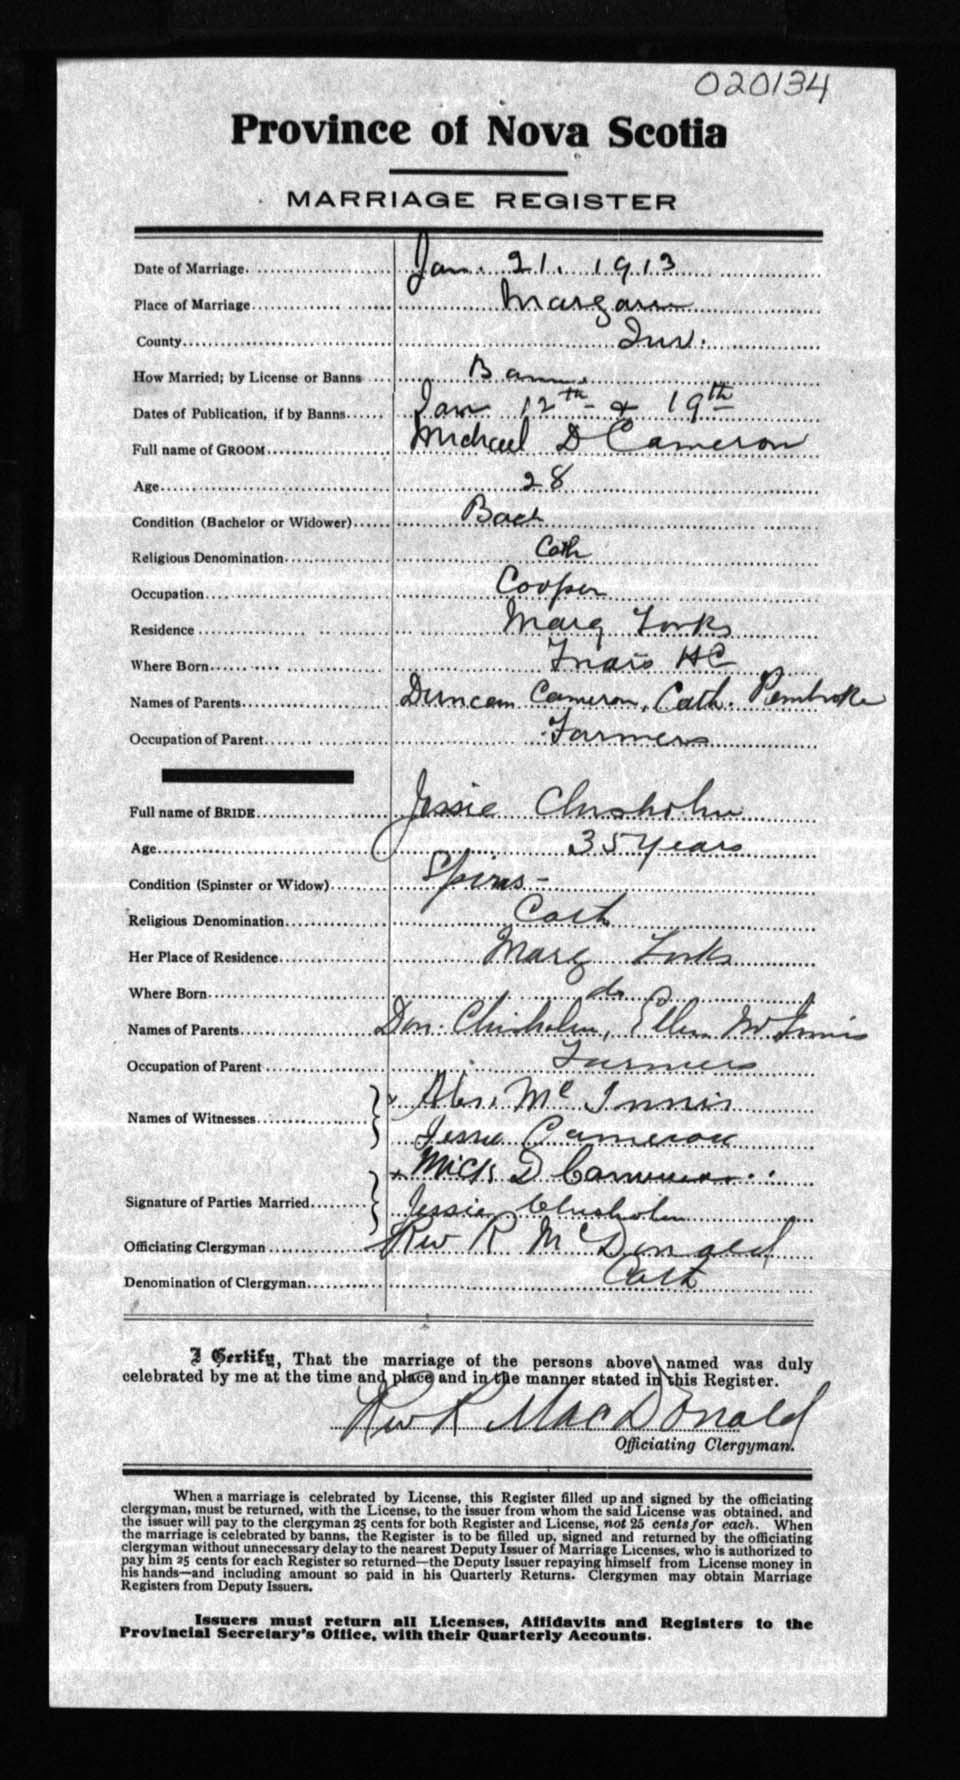 020134
Province of Nova Scotia
MARRIAGE REGISTER
Date of Marriage Jan. 21. 1913
Place of Marriage Margaree
County Inv.
How Married; by License or Banns Banns
Dates of Publication, if by Banns Jan 12th & 19th
Full name of GROOM Michael D Cameron
Age 28
Condition (Bachelor or Widower) Bach
Religious Denomination Cath
Occupation Cooper
Residence Marg Forks
Where Born
Names of Parents Duncan Cameron, Cath. Pembroke
Occupation of Parent Farmers
Full name of BRIDE Jessie Chisholm
Age 35 years
Condition (Spinster or Widow) Spins-
Religious Denomination Cath
Her Place of Residence Marg Forks
Where Born do
Names of Parents Don. Chisholm, Ellen McInnis
Occupation of Parent Farmers
Names of Witnesses Alex. McInnis
Jessie Cameron
Mick D Cameron
Signature of Parties Married Jessie Chisholm
Officiating Clergyman Rev R McDonald
Denomination of Clergyman Cath
I Certify, That the marriage of the persons above named was duly
celebrated by me at the time and place and in the manner stated in this Register.
Rev R MacDonald
Officiating Clergyman.
When a marriage is celebrated by License, this Register filled up and signed by the officiating
clergyman, must be returned, with the License, to the issuer from whom the said License was obtained, and
the issuer will pay to the clergyman 25 cents for both Register and License, not 25 cents for each. When
the marriage is celebrated by banns, the Register is to be filled up, signed and returned by the officiating
clergyman without unnecessary delay to the nearest Deputy Issuer of Marriage Licenses, who is authorized to
pay him 25 cents for each Register so returned—the Deputy Issuer repaying himself from License money in
his hands—and including amount so paid in his Quarterly Returns. Clergymen may obtain Marriage
Registers from Deputy Issuers.
Issuers must return all Licenses, Affidavits and Registers to the
Provincial Secretary's Office, with their Quarterly Accounts.